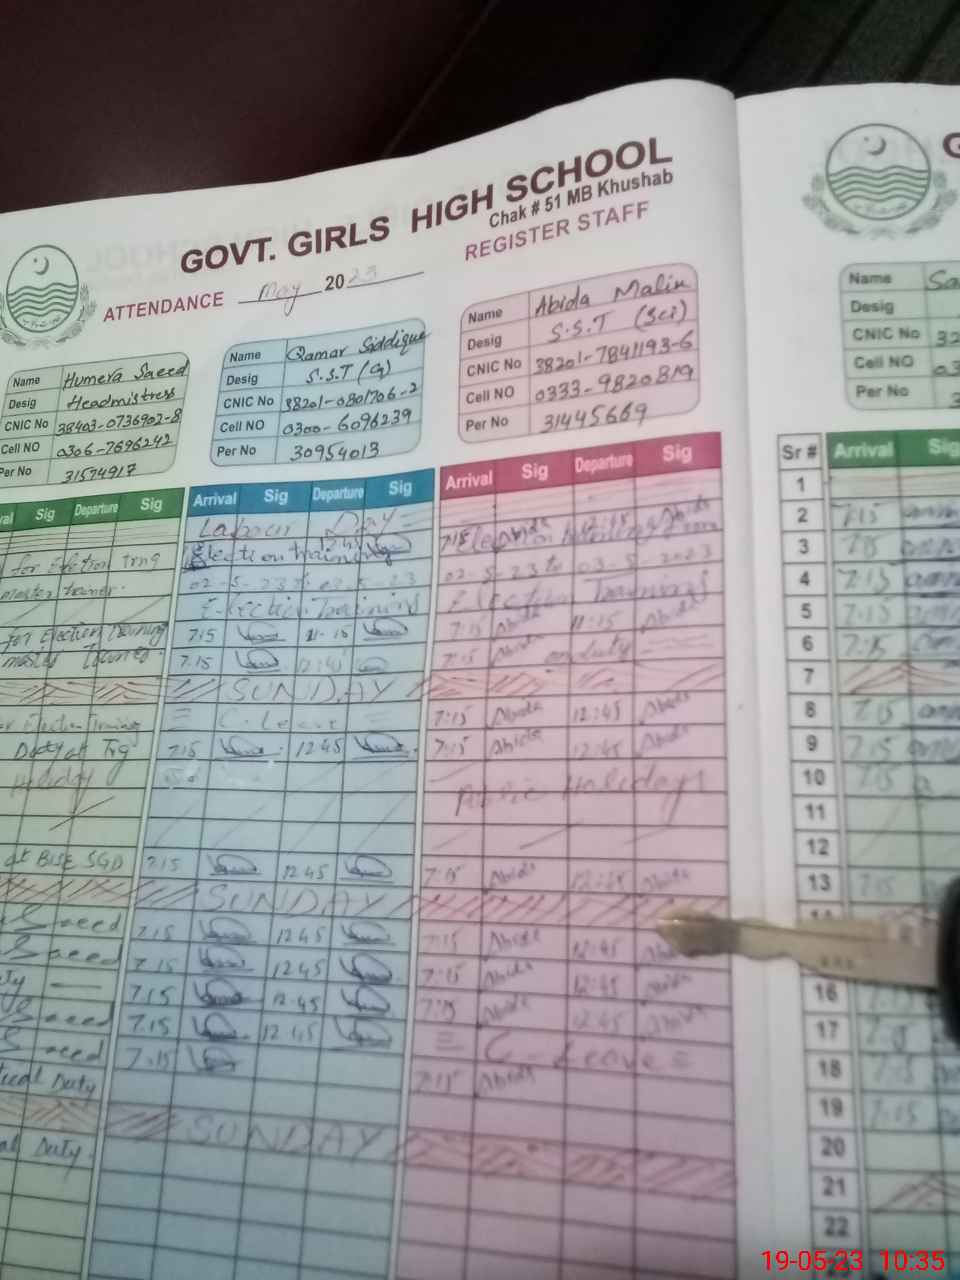 GOVT. GIRLS HIGH SCHOOL
Chak # 51 MB Khushab
ATTENDANCE May 2023 REGISTER STAFF
Name Humera Saeed
Desig Headmistress
CNIC No 38403-0736902-8
Cell NO 0306-7696242
Per No 31574917
Name Qamar Siddique
Desig S.S.T (G)
CNIC No 38201-0801706-2
Cell NO 0300-6096239
Per No 30954013
Name Abida Malik
Desig S.S.T (Sci)
CNIC No 38201-7841193-6
Cell NO 0333-9820819
Per No 31445669
Name
Desig
CNIC No
Cell NO
Per No
Sig Departure Sig
for Election Trng
master trainer.
for Election Training
Election Training
Duty at Trg
Holiday
at BISE SGD
Saeed
Saeed
Saeed
Saeed
Duty
Duty.
Arrival Sig Departure Sig
Labour Day
Election training
02-5-23 to 03-5-23
Election Training
7.15 11-15
7.15 12:45
SUNDAY
C. Leave
7.15 12.45
7.15 12.45
SUNDAY
7.15 12.45
7.15 12.45
7.15 12.45
7.15 12.45
7.15
SUNDAY
Arrival Sig Departure Sig
7:15 Abida 12:45 Abida
02-5-23 to 03-5-2023
Election Training
7:15 Abida 11:15 Abida
7:15 Abida on duty
7:15 Abida 12:45 Abida
7:15 Abida 12:45 Abida
Public Holidays
7:15 Abida 12:45 Abida
7:15 Abida 12:45
7:15 Abida 12:45 Abida
7:15 Abida 12:45 Abida
C-Leave
7:15 Abida
Sr # Arrival Sig
1
2 7:15
3 7:15
4 7:15
5 7:15
6 7:15
7
8 7:15
9 7:15
10 7:15
11
12
13 7:15
14
16
17
18 7:15
19 7:15
20
21
22
19-05-23 10:35